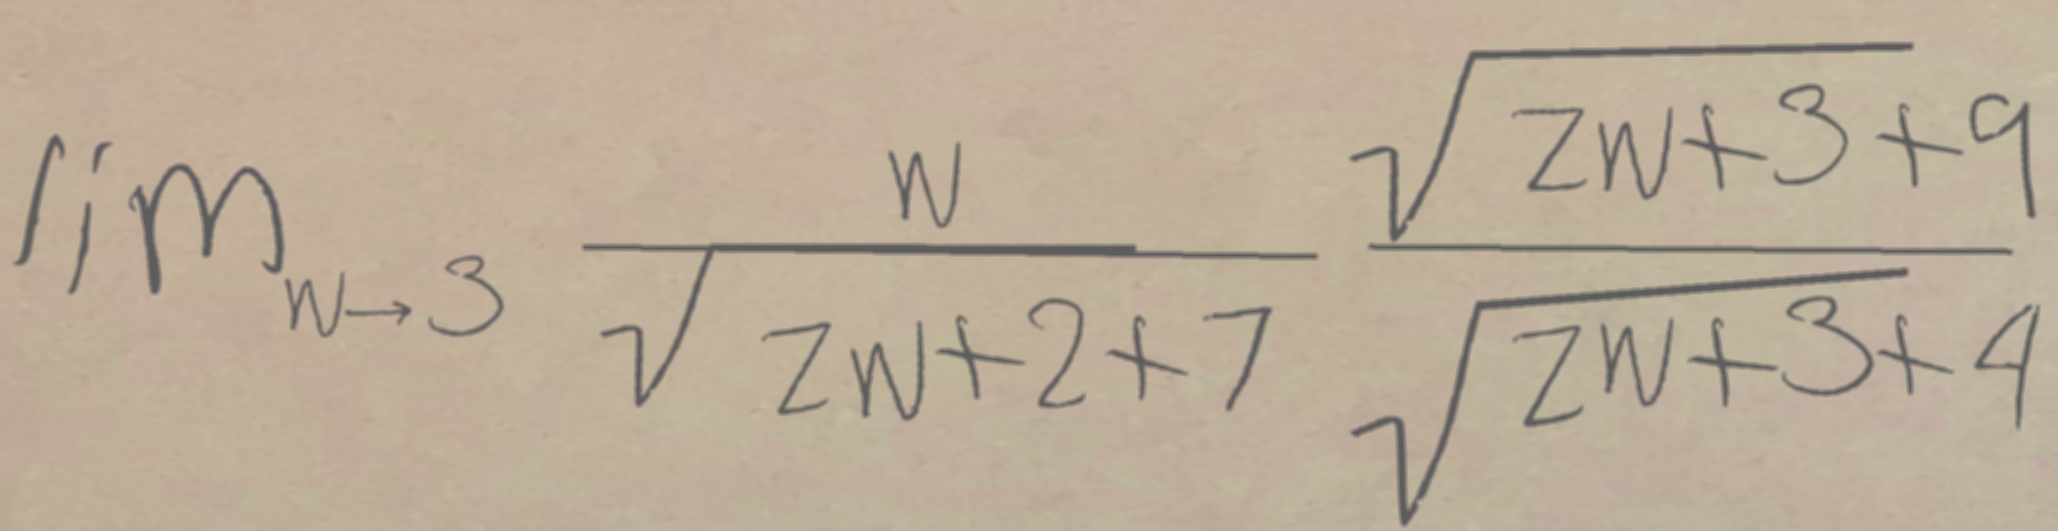 \lim_{w \to 3} \frac{w}{\sqrt{zw+2}+7} \frac{\sqrt{zw+3}+9}{\sqrt{zw+3}+4}